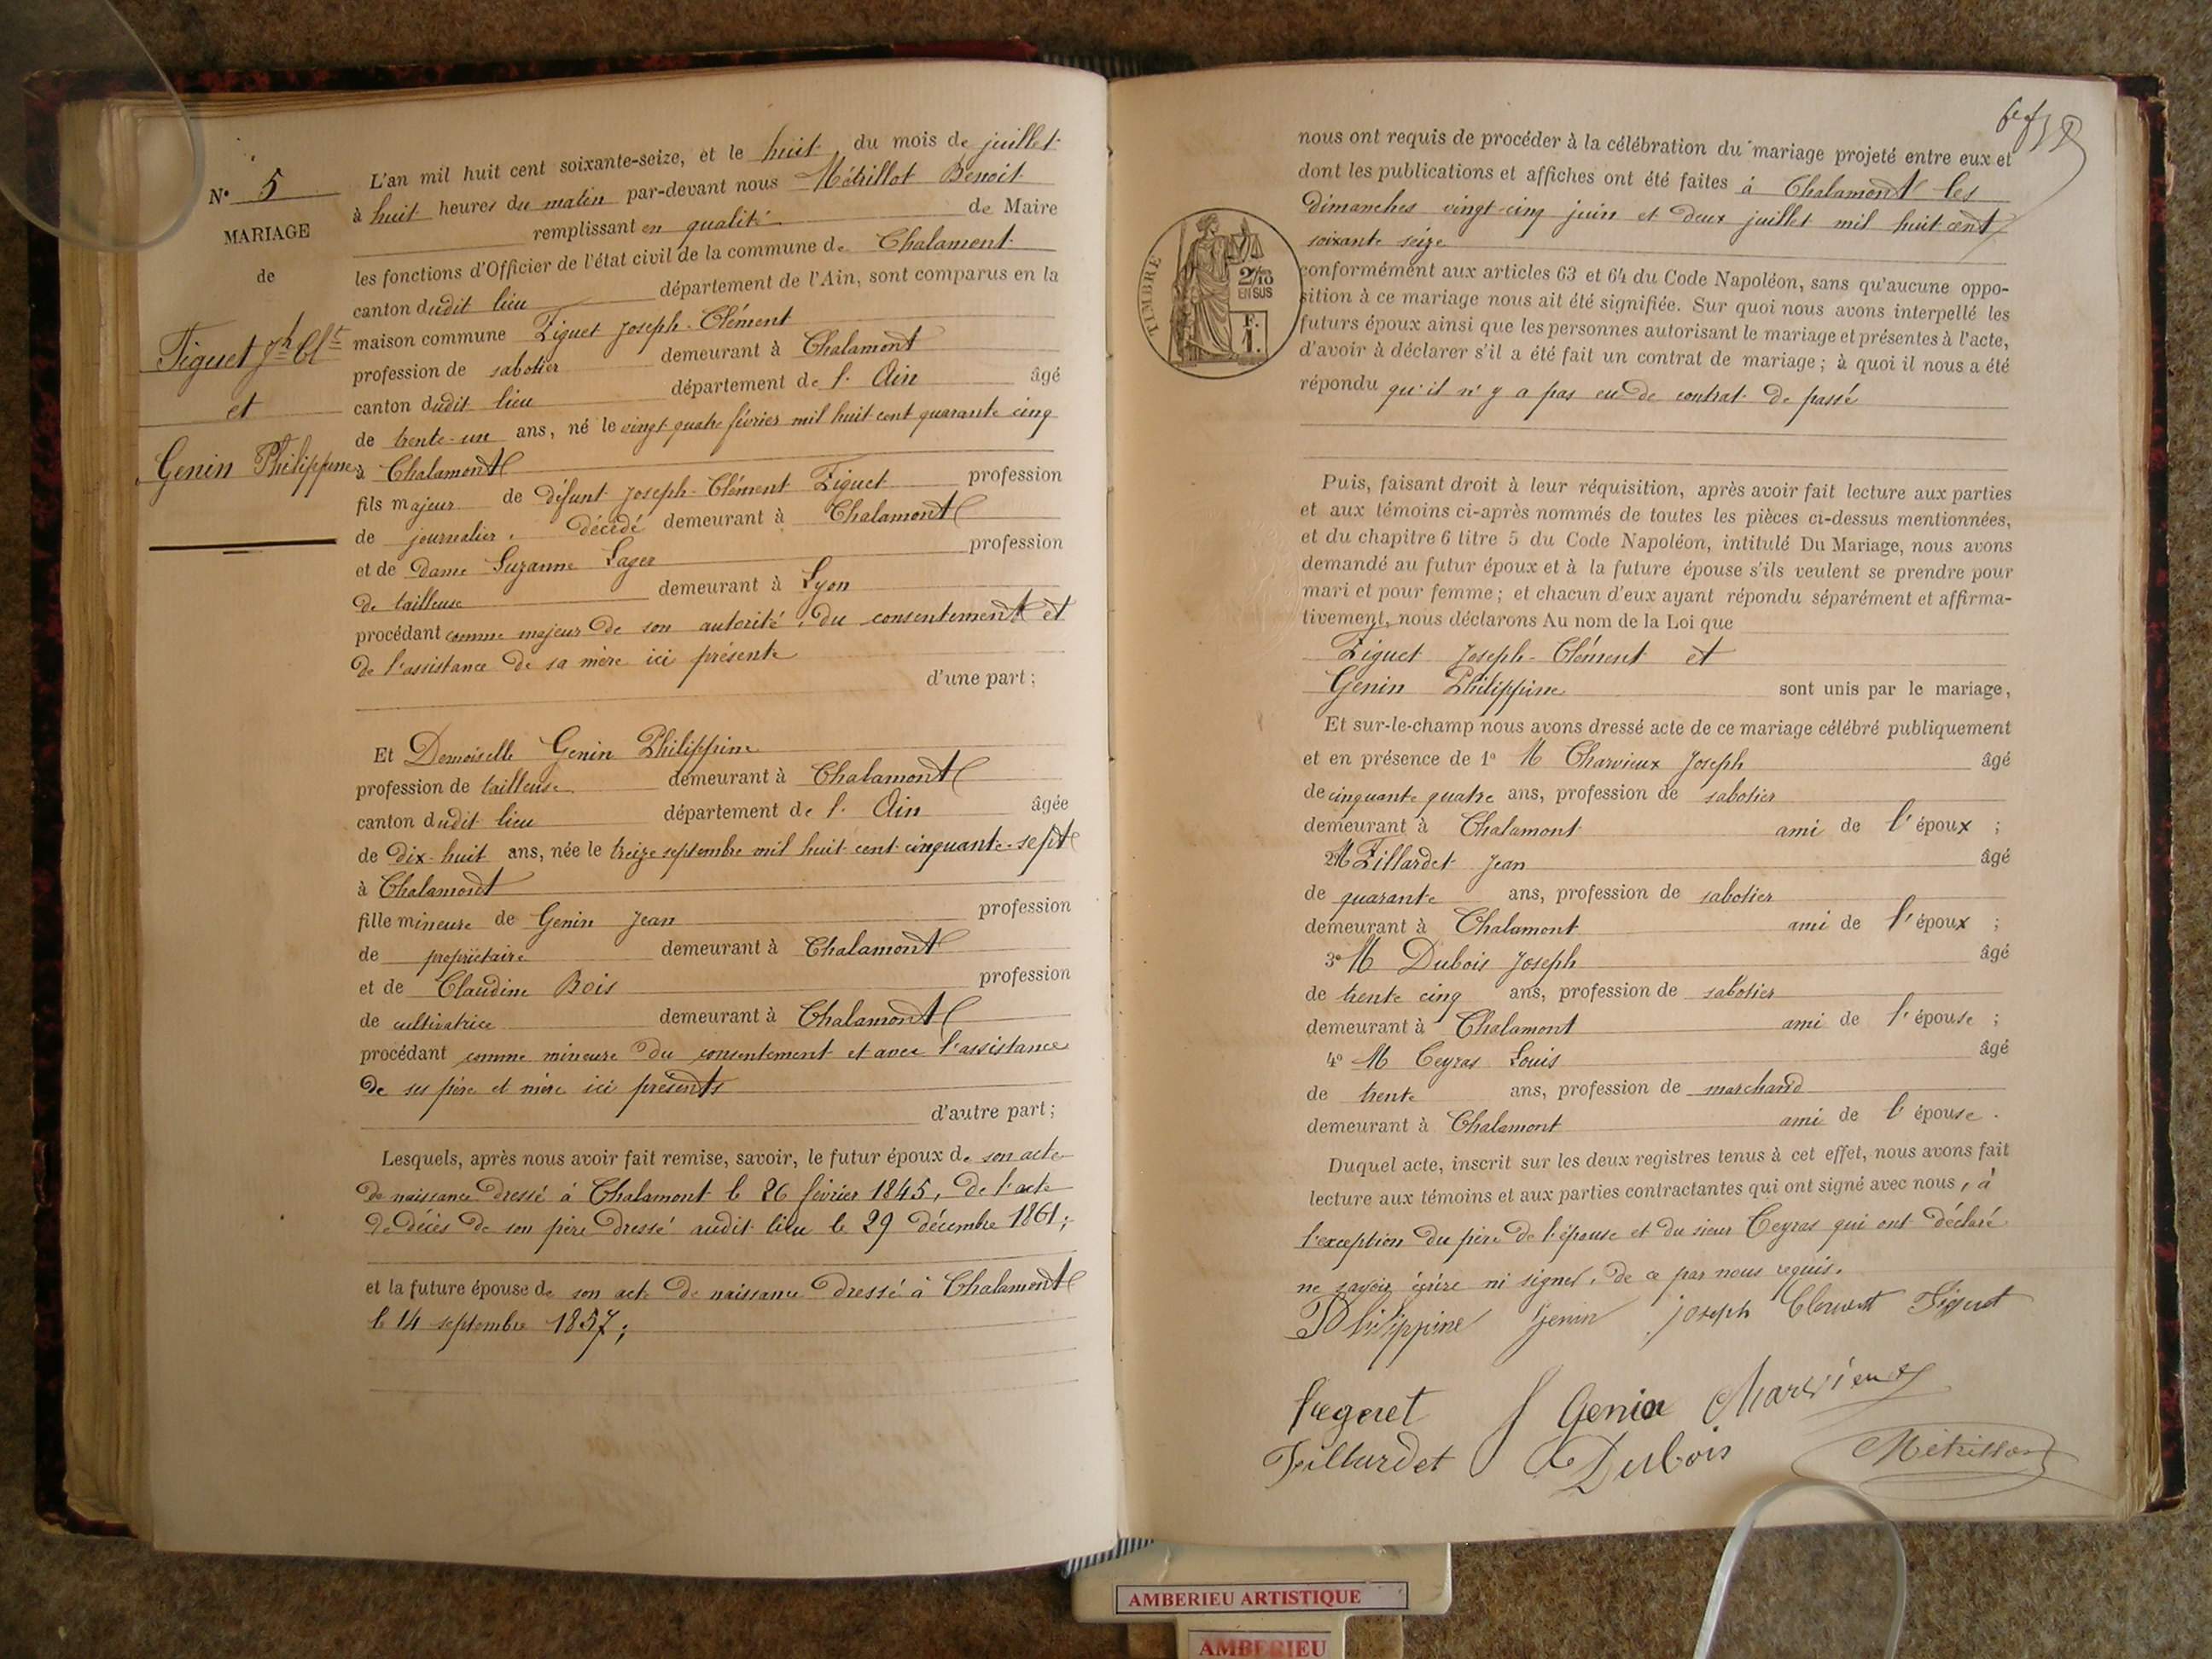 N° 5
MARIAGE
de
Figuet Jh Clt
et
Genin Philippine
L'an mil huit cent soixante-seize, et le huit du mois de juillet
à huit heures du matin par-devant nous Métrillot Benoit
remplissant en qualité de Maire
les fonctions d'Officier de l'état civil de la commune de Chalamont
canton dudit lieu département de l'Ain, sont comparus en la
maison commune Figuet Joseph-Clément
profession de sabotier demeurant à Chalamont
canton dudit lieu département de l'Ain âgé
de trente-un ans, né le vingt quatre février mil huit cent quarante cinq
à Chalamont
fils majeur de défunt Joseph-Clément Figuet profession
de journalier, décédé demeurant à Chalamont
et de Dame Suzanne Lager profession
de tailleuse demeurant à Lyon
procédant comme majeur de son autorité, du consentement et
de l'assistance de sa mère ici présente
d'une part;
Et Demoiselle Genin Philippine
profession de tailleuse demeurant à Chalamont
canton dudit lieu département de l'Ain âgée
de dix-huit ans, née le treize septembre mil huit cent cinquante-sept
à Chalamont
fille mineure de Genin Jean profession
de propriétaire demeurant à Chalamont
et de Claudine Bois profession
de cultivatrice demeurant à Chalamont
procédant comme mineure du consentement et avec l'assistance
de ses père et mère ici présents
d'autre part;
Lesquels, après nous avoir fait remise, savoir, le futur époux de son acte
de naissance dressé à Chalamont le 26 février 1845, de l'acte
de décès de son père dressé audit lieu le 29 décembre 1861;
et la future épouse de son acte de naissance dressé à Chalamont
le 14 septembre 1857;
nous ont requis de procéder à la célébration du mariage projeté entre eux et
dont les publications et affiches ont été faites à Chalamont les
dimanches vingt-cinq juin et deux juillet mil huit cent
soixante seize
TIMBRE
2/10 EN SUS
F. 1.
conformément aux articles 63 et 64 du Code Napoléon, sans qu'aucune oppo-
sition à ce mariage nous ait été signifiée. Sur quoi nous avons interpellé les
futurs époux ainsi que les personnes autorisant le mariage et présentes à l'acte,
d'avoir à déclarer s'il a été fait un contrat de mariage; à quoi il nous a été
répondu qu'il n'y a pas eu de contrat de passé
Puis, faisant droit à leur réquisition, après avoir fait lecture aux parties
et aux témoins ci-après nommés de toutes les pièces ci-dessus mentionnées,
et du chapitre 6 titre 5 du Code Napoléon, intitulé Du Mariage, nous avons
demandé au futur époux et à la future épouse s'ils veulent se prendre pour
mari et pour femme; et chacun d'eux ayant répondu séparément et affirma-
tivement, nous déclarons Au nom de la Loi que
Figuet Joseph-Clément et
Genin Philippine sont unis par le mariage,
Et sur-le-champ nous avons dressé acte de ce mariage célébré publiquement
et en présence de 1° M Charvieux Joseph âgé
de cinquante quatre ans, profession de sabotier
demeurant à Chalamont ami de l'époux ;
2° M Fillardet Jean âgé
de quarante ans, profession de sabotier
demeurant à Chalamont ami de l'époux ;
3° M Dubois Joseph âgé
de trente cinq ans, profession de sabotier
demeurant à Chalamont ami de l'épouse ;
4° M Ceyras Louis âgé
de trente ans, profession de marchand
demeurant à Chalamont ami de l'épouse .
Duquel acte, inscrit sur les deux registres tenus à cet effet, nous avons fait
lecture aux témoins et aux parties contractantes qui ont signé avec nous, à
l'exception du père de l'épouse et du sieur Ceyras qui ont déclaré
ne savoir écrire ni signer, de ce par nous requis.
Philippine Genin Joseph Clement Figuet
f Genin Charvieux
Fillardet Dubois Métrillot
AMBERIEU ARTISTIQUE
AMBERIEU